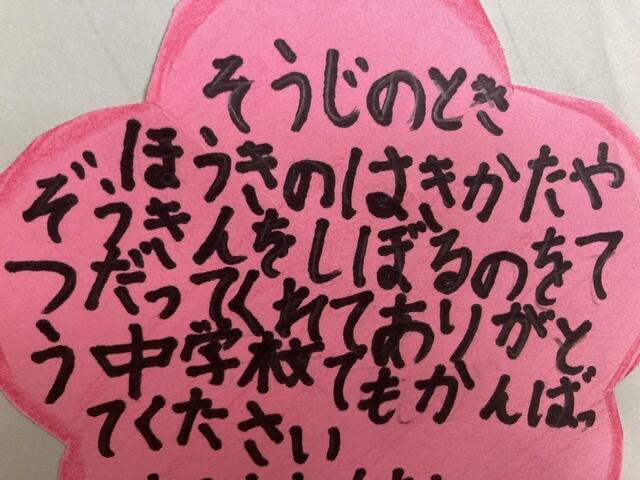 そうじのとき
ほうきのはきかたや
ぞうきんをしぼるのをて
つだってくれてありがと
う中学校でもがんばっ
てください